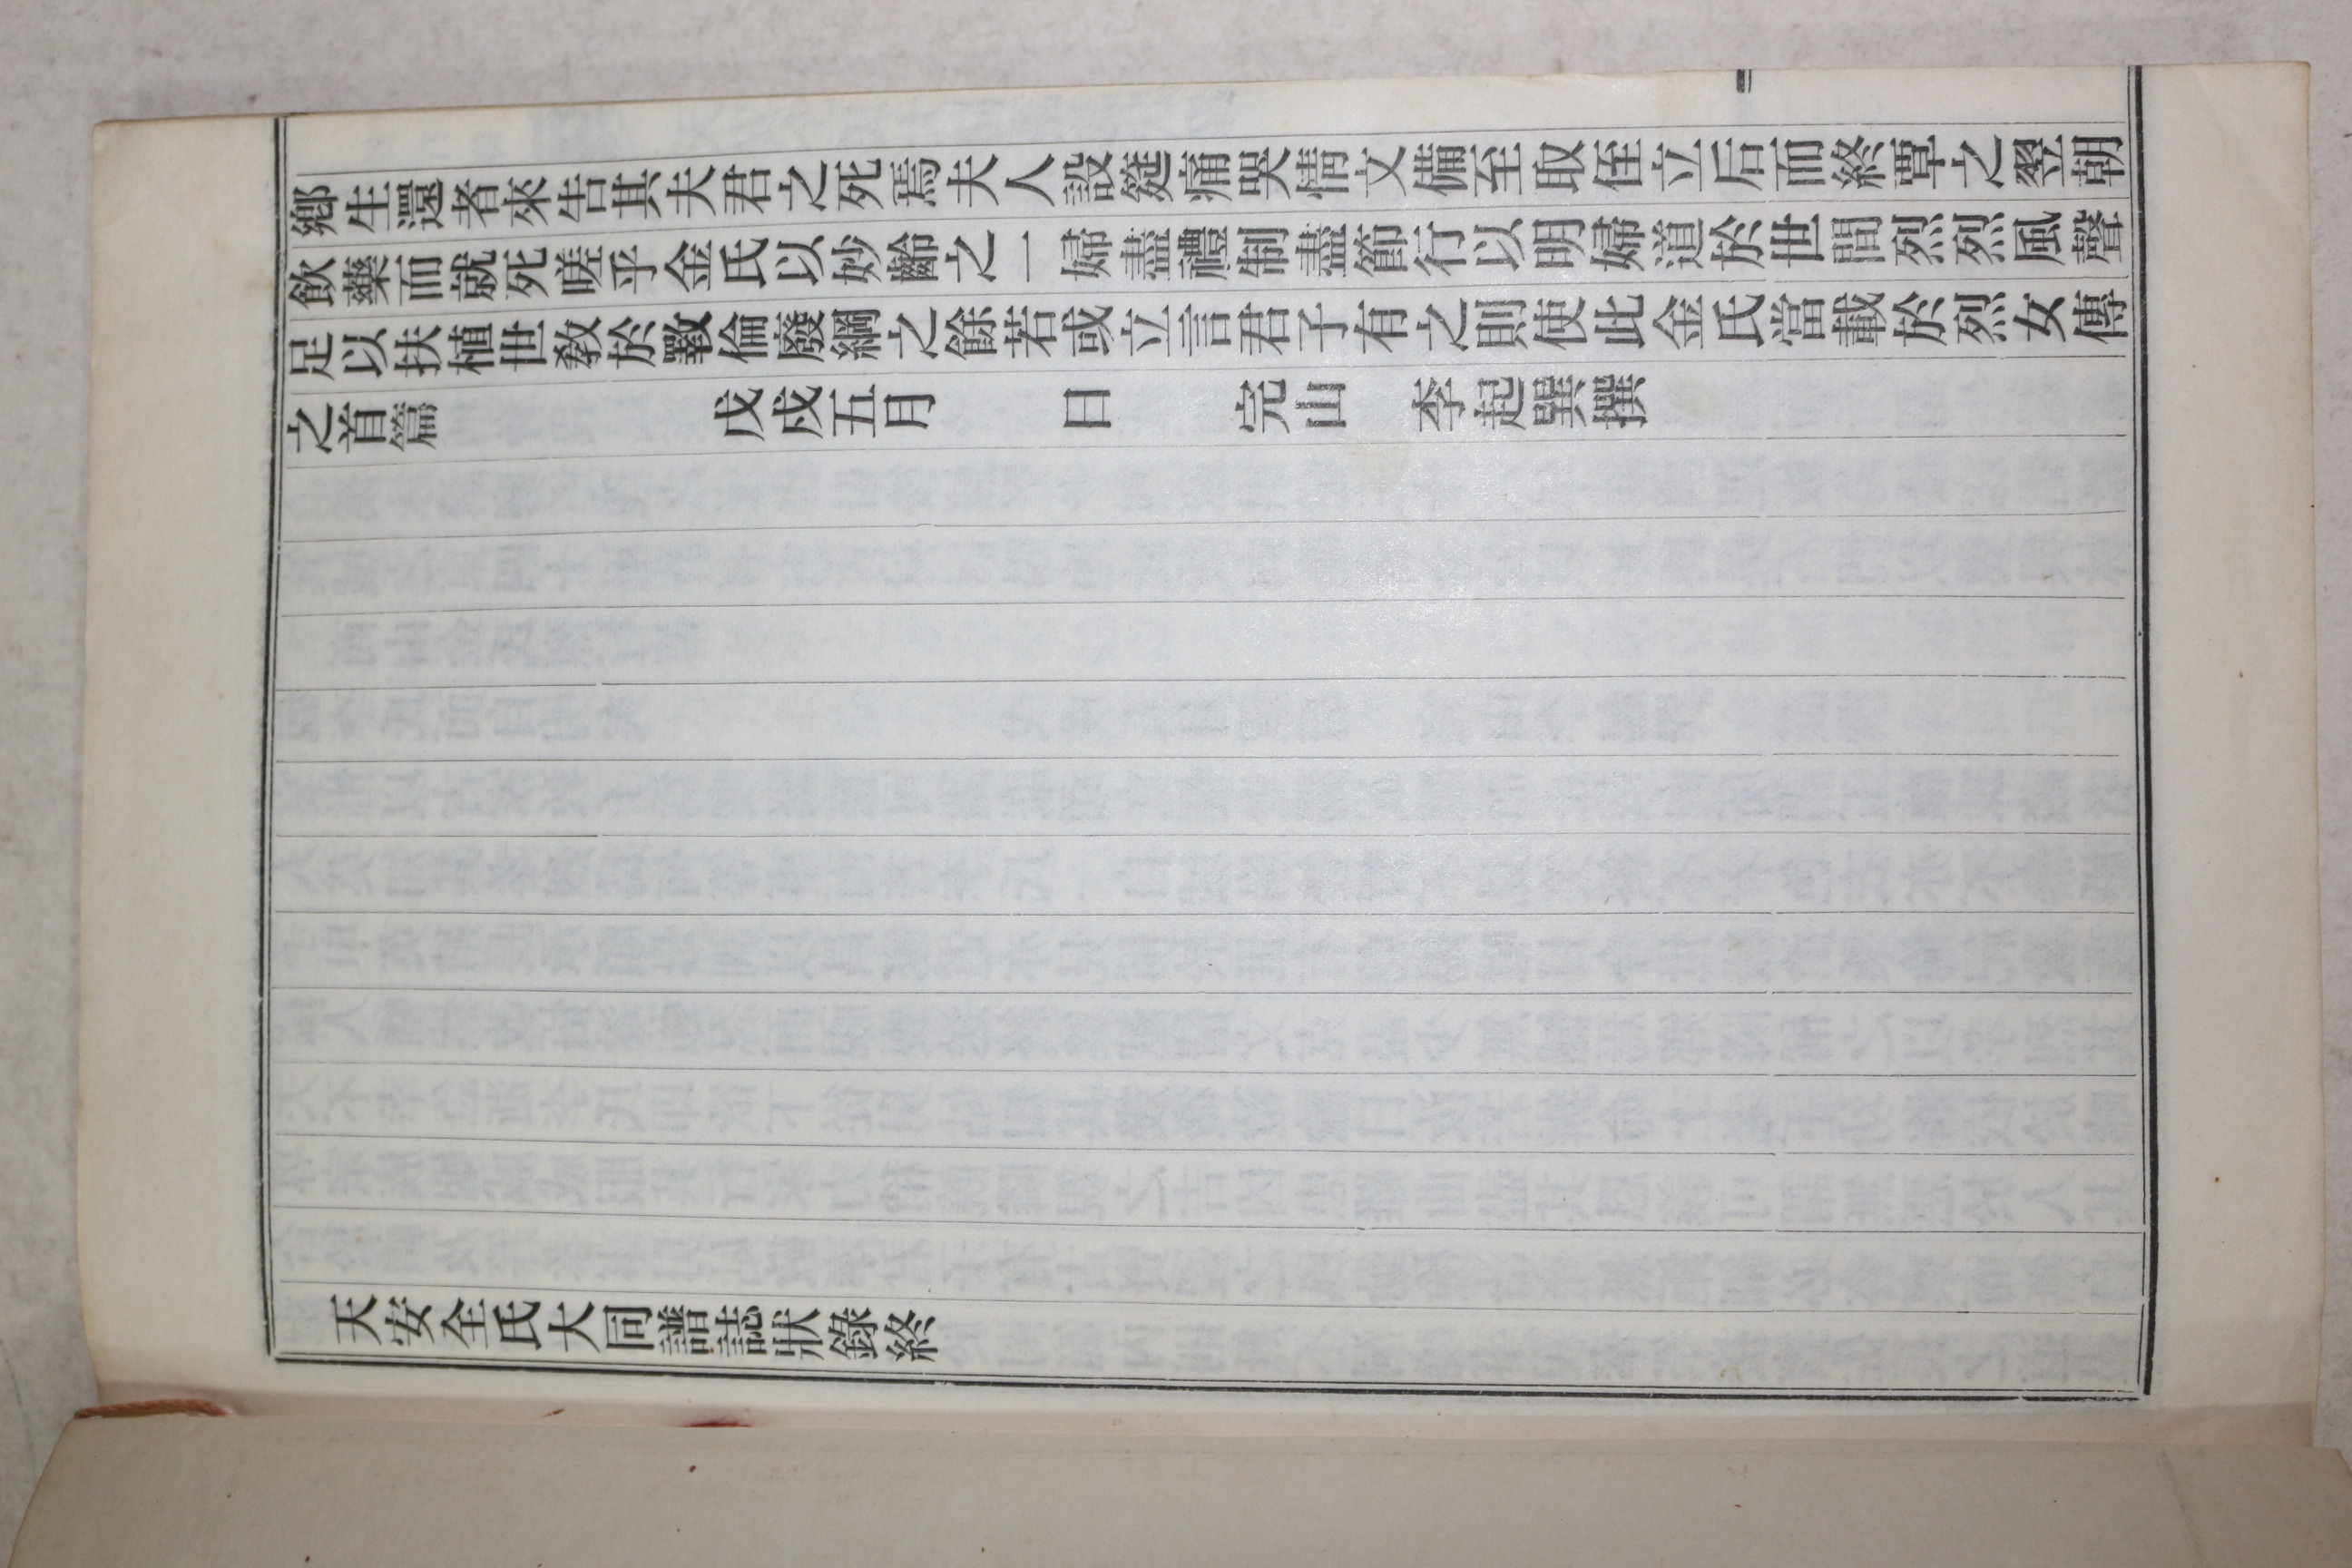 鄕生還者來告其夫君之死焉夫人設筵痛哭情文備至取侄立后而終覃之翌朝
飮藥而就死嗟乎金氏以妙齡之一婦盡禮制盡節行以明婦道於世間烈烈風聲
足以扶植世敎於斁倫廢綱之餘若或立言君子有之則使此金氏當載於烈女傳
之首篇　　　戊戌五月　　日　　完山　李起巽撰
天安全氏大同譜誌狀錄終